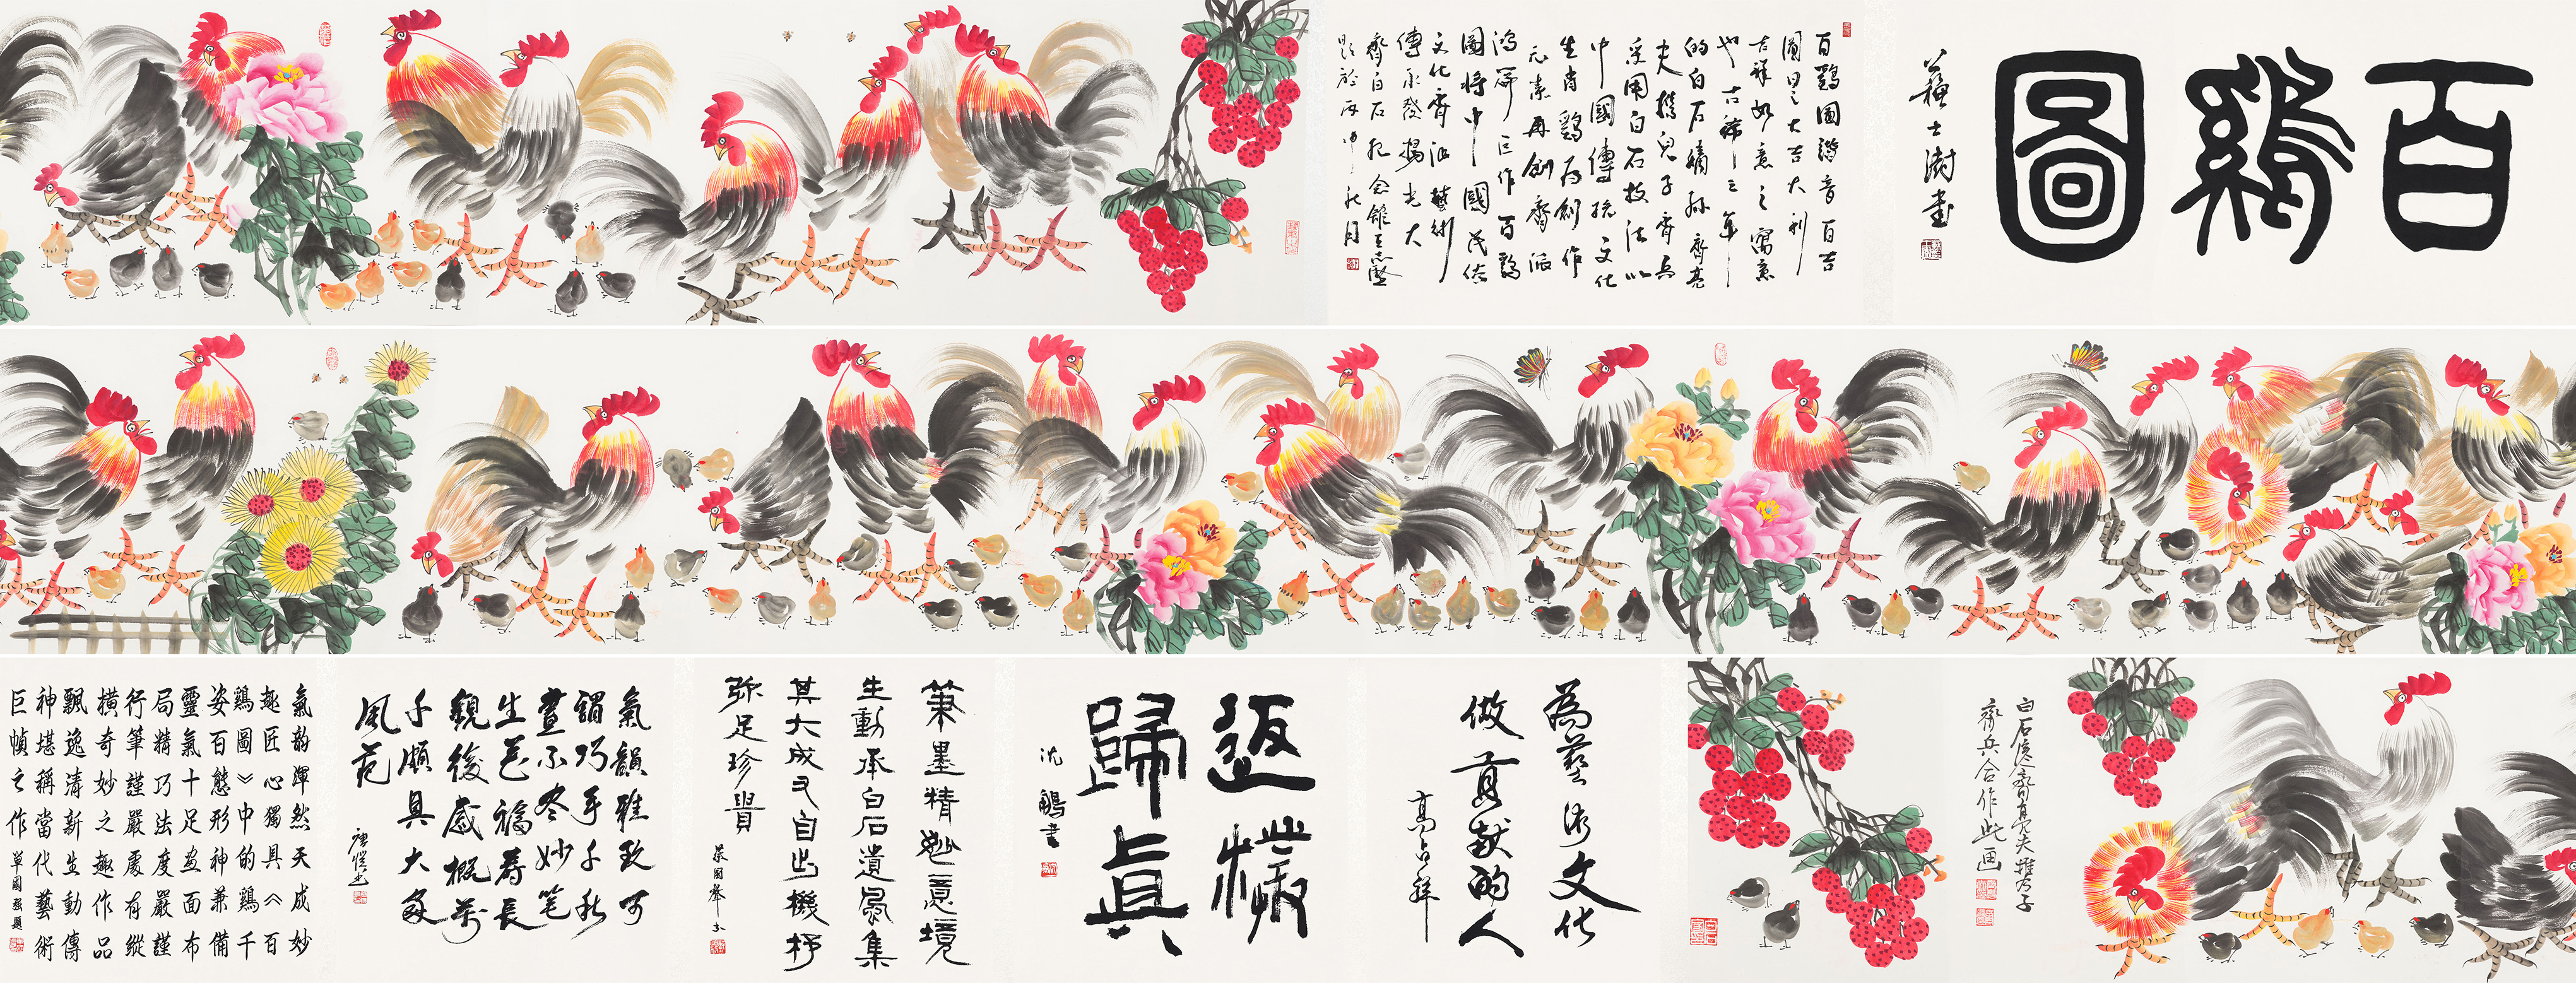 百鷄圖
蘇士澍書
百鷄圖諧音百吉
圖曰之大吉大利
吉祥如意之寓意
也古稀之年
的白石嫡孫齊亮
夫携兒子齊兵
采用白石技法以
中國傳統文化
生肖鷄为創作
元素再創齊派
鴻篇巨作百鷄
圖將中國民俗
文化齊派藝術
傳承發揚光大
齊白石紀念館王志堅
題於丙申秋月
白石後裔齊亮夫携子
齊兵合作此画
為藝術文化
做貢献的人
高占祥
返樸
歸真
沈鵬書
筆墨精妙意境
生動承白石遺風集
其大成又自出機杼
弥足珍貴
氣韻雅致可
謂巧手千秋
畫不尽妙笔
生花福壽長
観後感概萬
千頗具大家
風范
氣韵渾然天成妙
趣匠心獨具《百
鷄圖》中的鷄千
姿百態形神兼備
靈氣十足画面布
局精巧法度嚴謹
行筆謹嚴處有縱
橫奇妙之趣作品
飄逸清新生動傳
神堪稱當代藝術
巨幀之作 單國强題